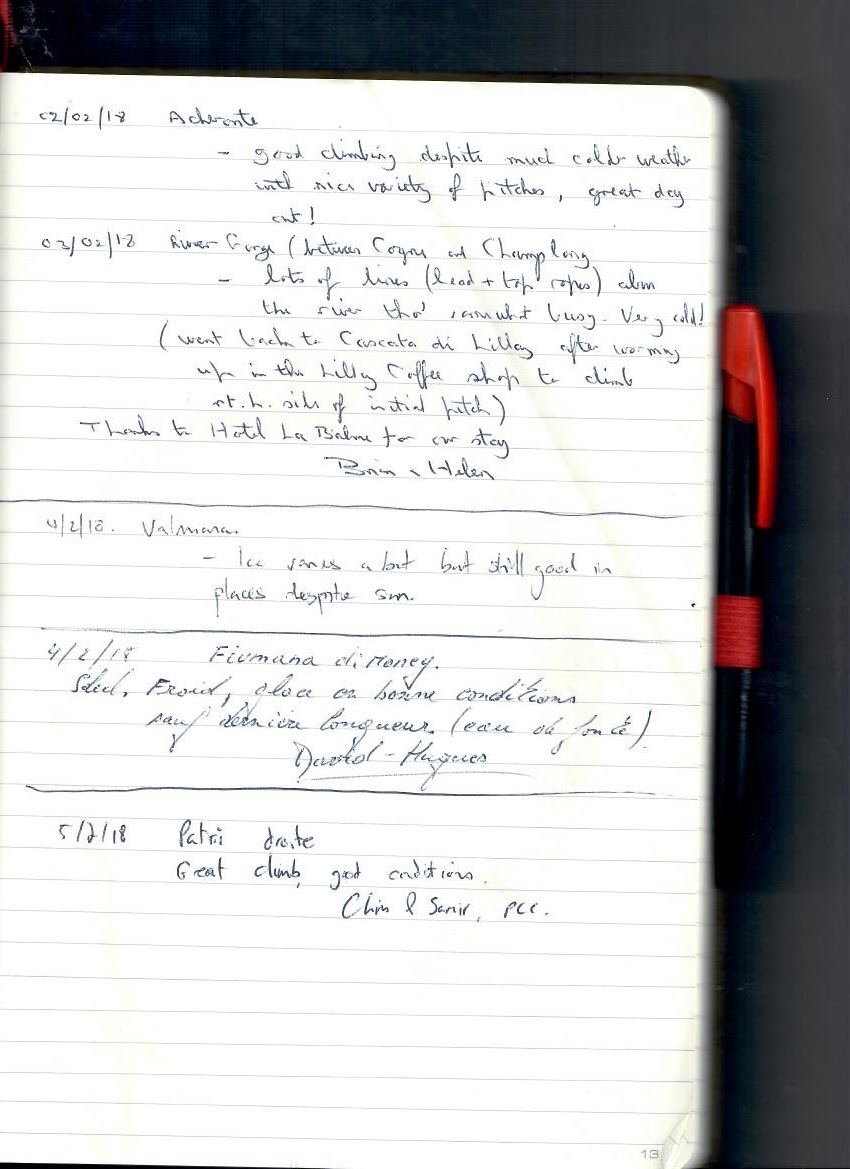 02/02/18 Acheronte
- good climbing despite much colder weather
with nice variety of pitches, great day
out!
03/02/18 River Gorge (between Cogne and Champlong
- lots of lines (lead + top ropes) along
the river tho' somewhat busy. Very cold!
(went back to Cascata di Lillaz after warming
up in the Lillaz Coffee shop to climb
rt. h. side of initial pitch)
Thanks to Hotel La Barme for our stay
Brian & Helen
4/2/18. Valmiana.
- Ice varies a bit but still good in
places despite sun.
4/2/18 Fiumana di Money.
Soleil, Froid, glace en bonne conditions
sauf dernière longueur. (eau
David - Hugues
5/2/18 Patrì droite
Great climb, good conditions.
Chris & Samir, PCC.
13